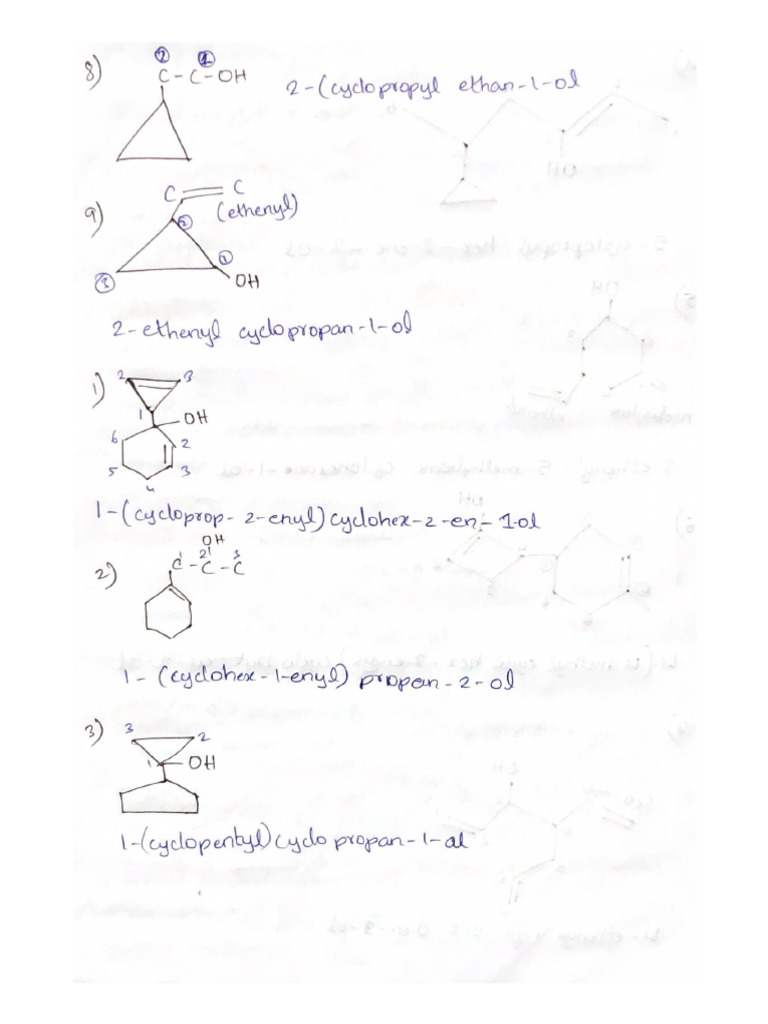 8) C - C - OH
② ①
2-(cyclopropyl ethan-1-ol
9) C = C
(ethenyl)
② ① ③
OH
2-ethenyl cyclopropan-1-ol
1) 2 3
1 OH
6 2
5 3
4
1-(cycloprop-2-enyl)cyclohex-2-en-1-ol
OH
2) 1 2 3
C - C - C
1-(cyclohex-1-enyl) propan-2-ol
3) 3 2
1 OH
1-(cyclopentyl)cyclo propan-1-al